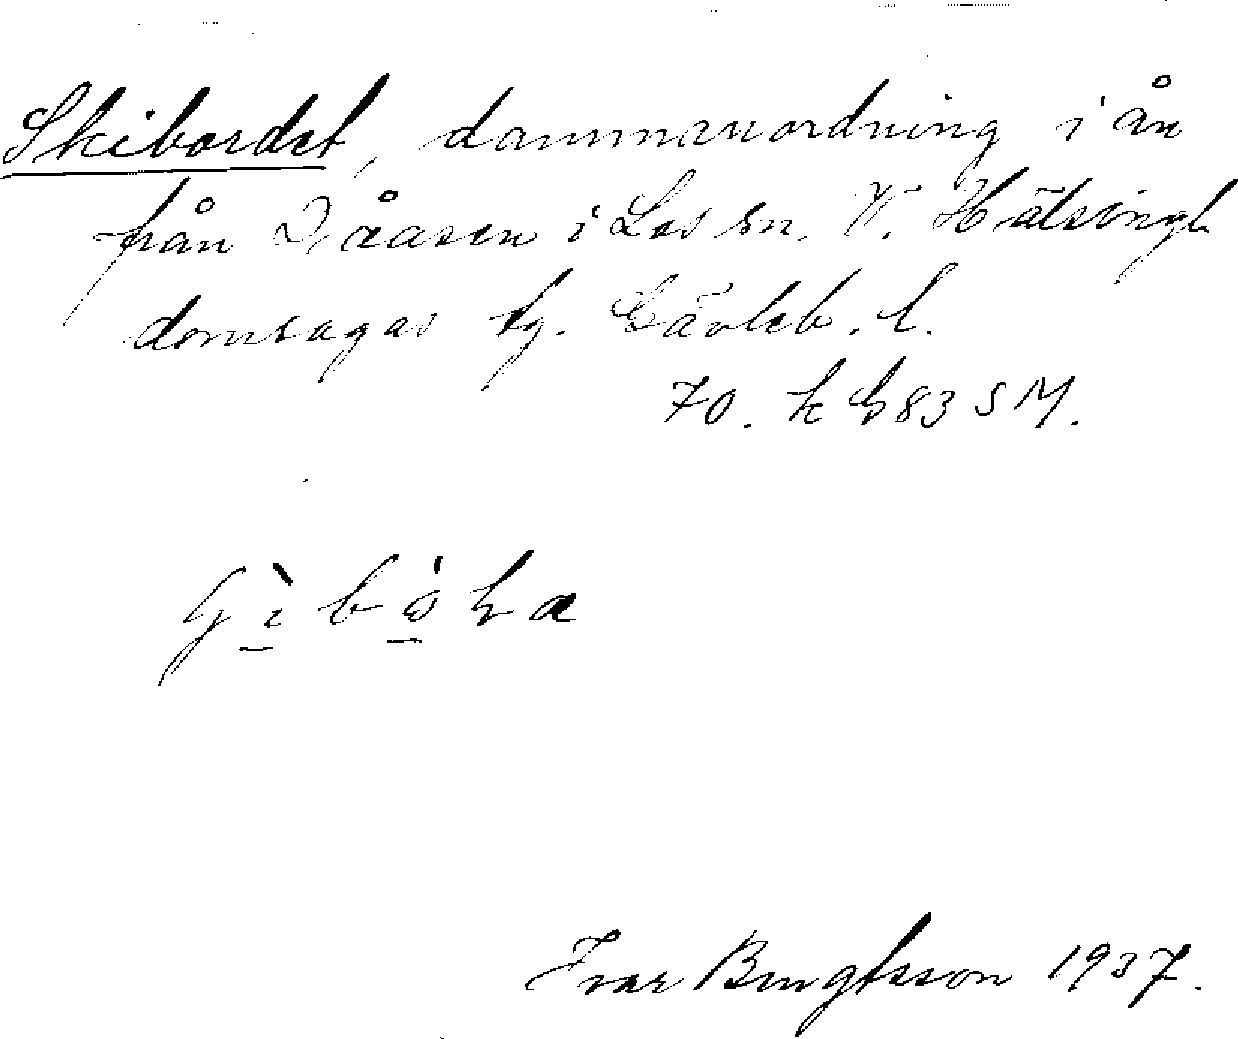 Skibordet, dammanordning i ån
från Dåasen i Los sn. V. Hälsingl
domsagas tg. Gävleb. l.
70. k G 83 S M.
Ivar Bengtsson 1937.